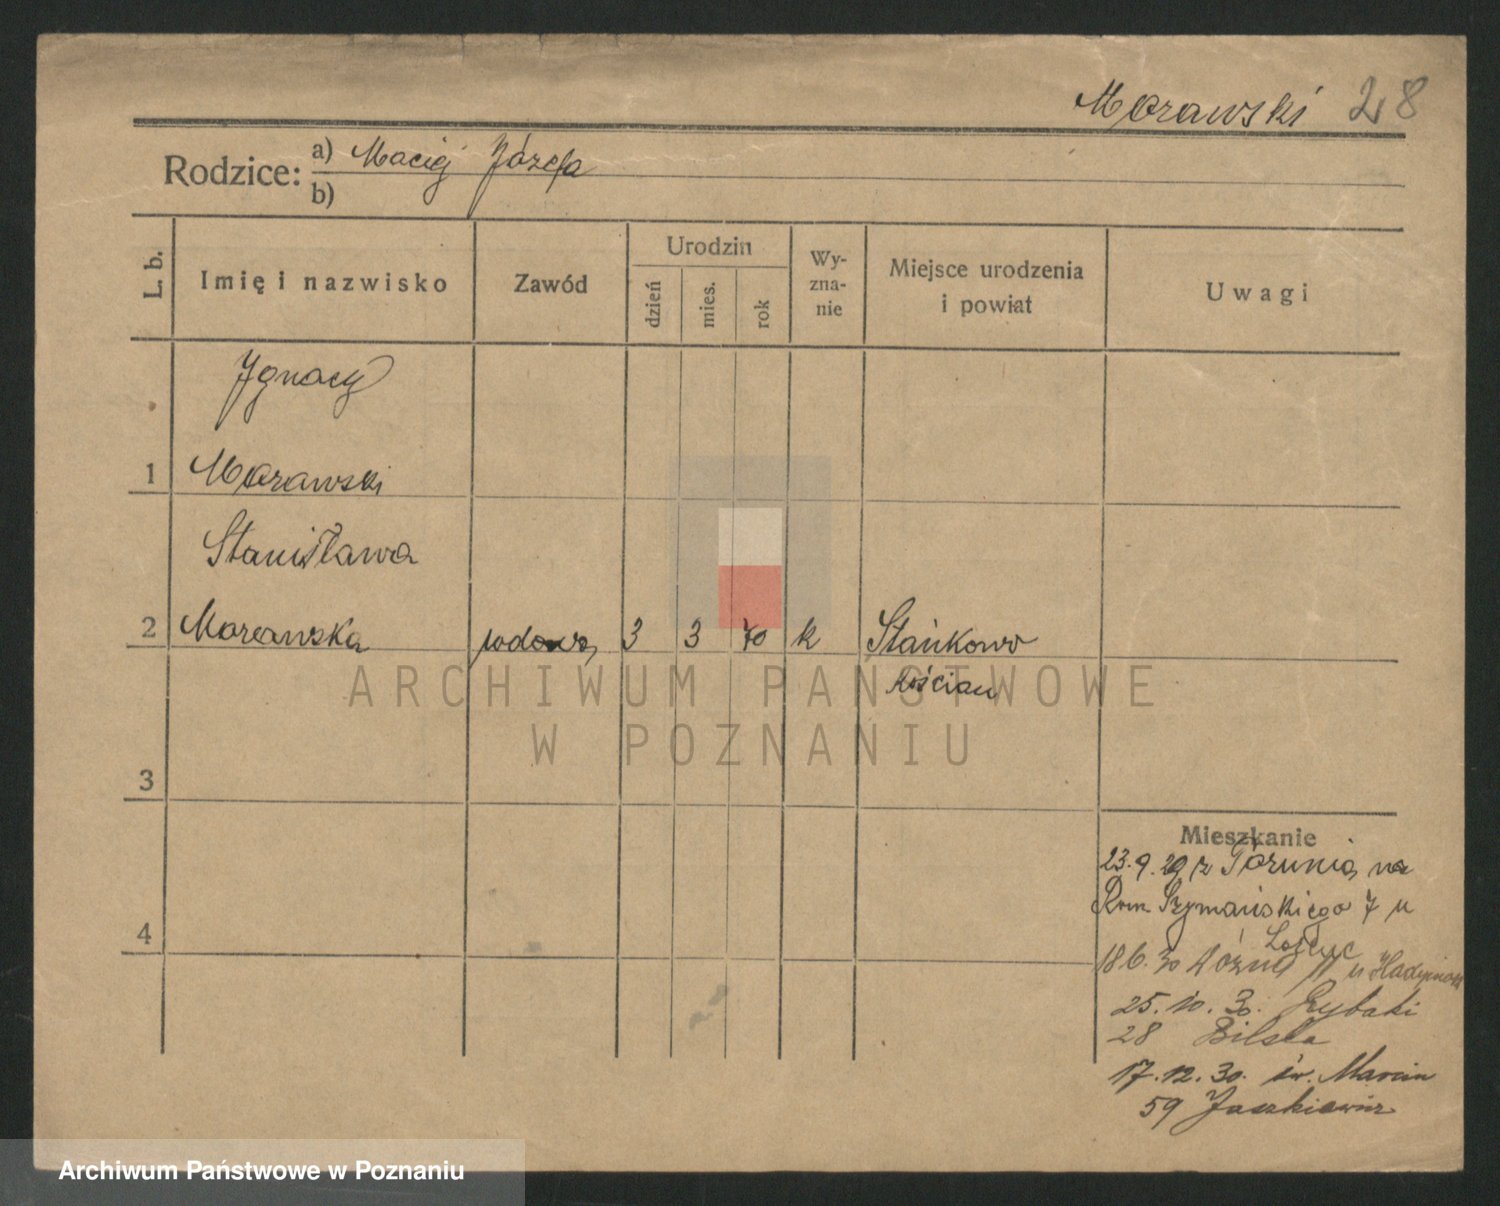 Morawski 28
Rodzice: a) Maciej Józefa
b)
L. b. Imię i nazwisko Zawód Urodzin dzień mies. rok Wy-zna-nie Miejsce urodzenia i powiat Uwagi
Ignacy
1 Morawski
Stanisława
2 Morawska wdowa 3 3 70 k Stańkowo
Kościan
ARCHIWUM PAŃSTWOWE
W POZNANIU
3
Mieszkanie
23.9.29 z Torunia na
Rom. Szymańskiego 7 u
4
18.6.30 11 u
25.10.30. Rybaki
28 Bilska
17.12.30. św. Marcin
59 Jaszkiewicz
Archiwum Państwowe w Poznaniu